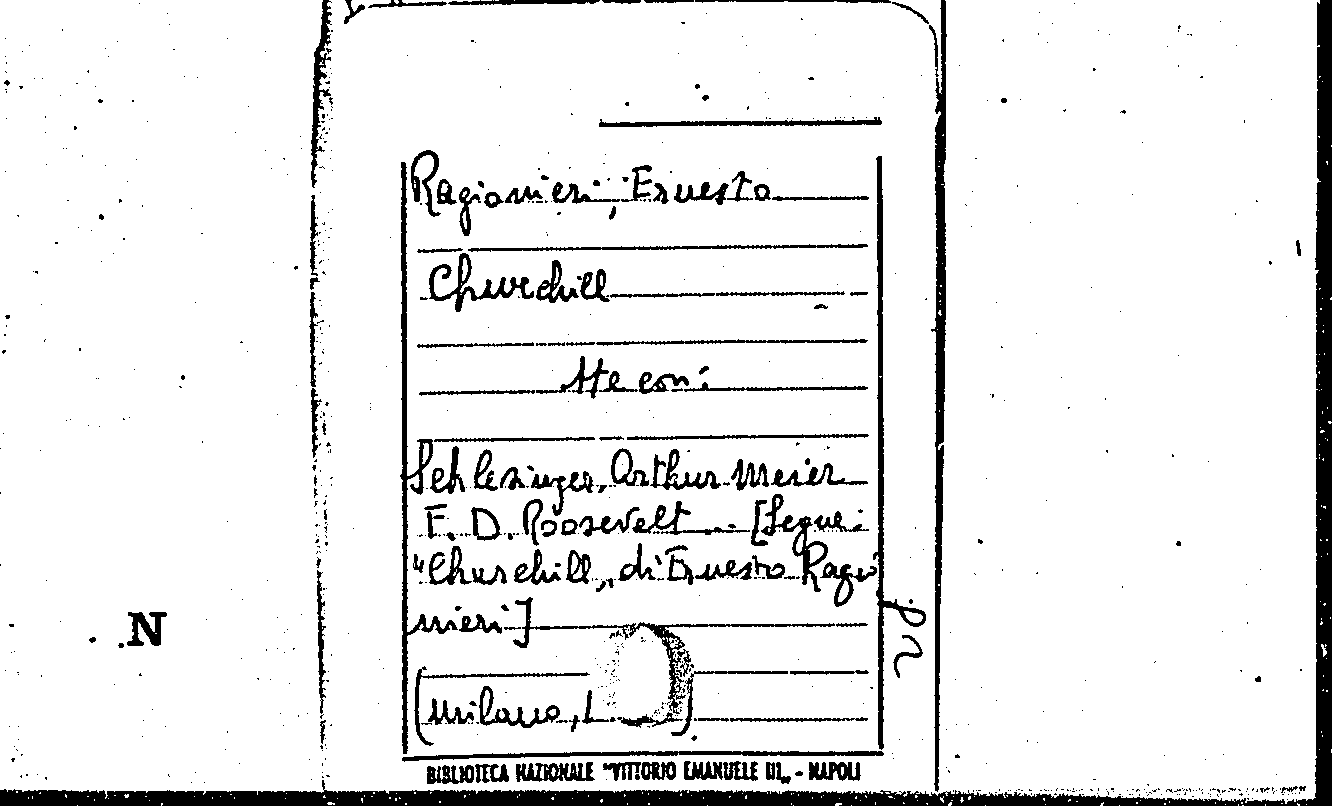 Ragionieri, Ernesto
Churchill
Ste con:
Schlesinger, Arthur Meier
F. D. Roosevelt ... [Segue:
"Churchill„ di Ernesto Ragio
nieri]
(Milano,
N
BIBLIOTECA NAZIONALE "VITTORIO EMANUELE III„ - NAPOLI